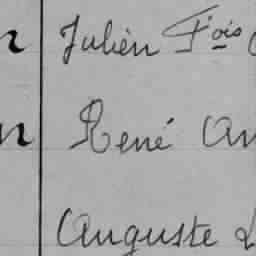 n Julien Fois
n René An
Auguste L